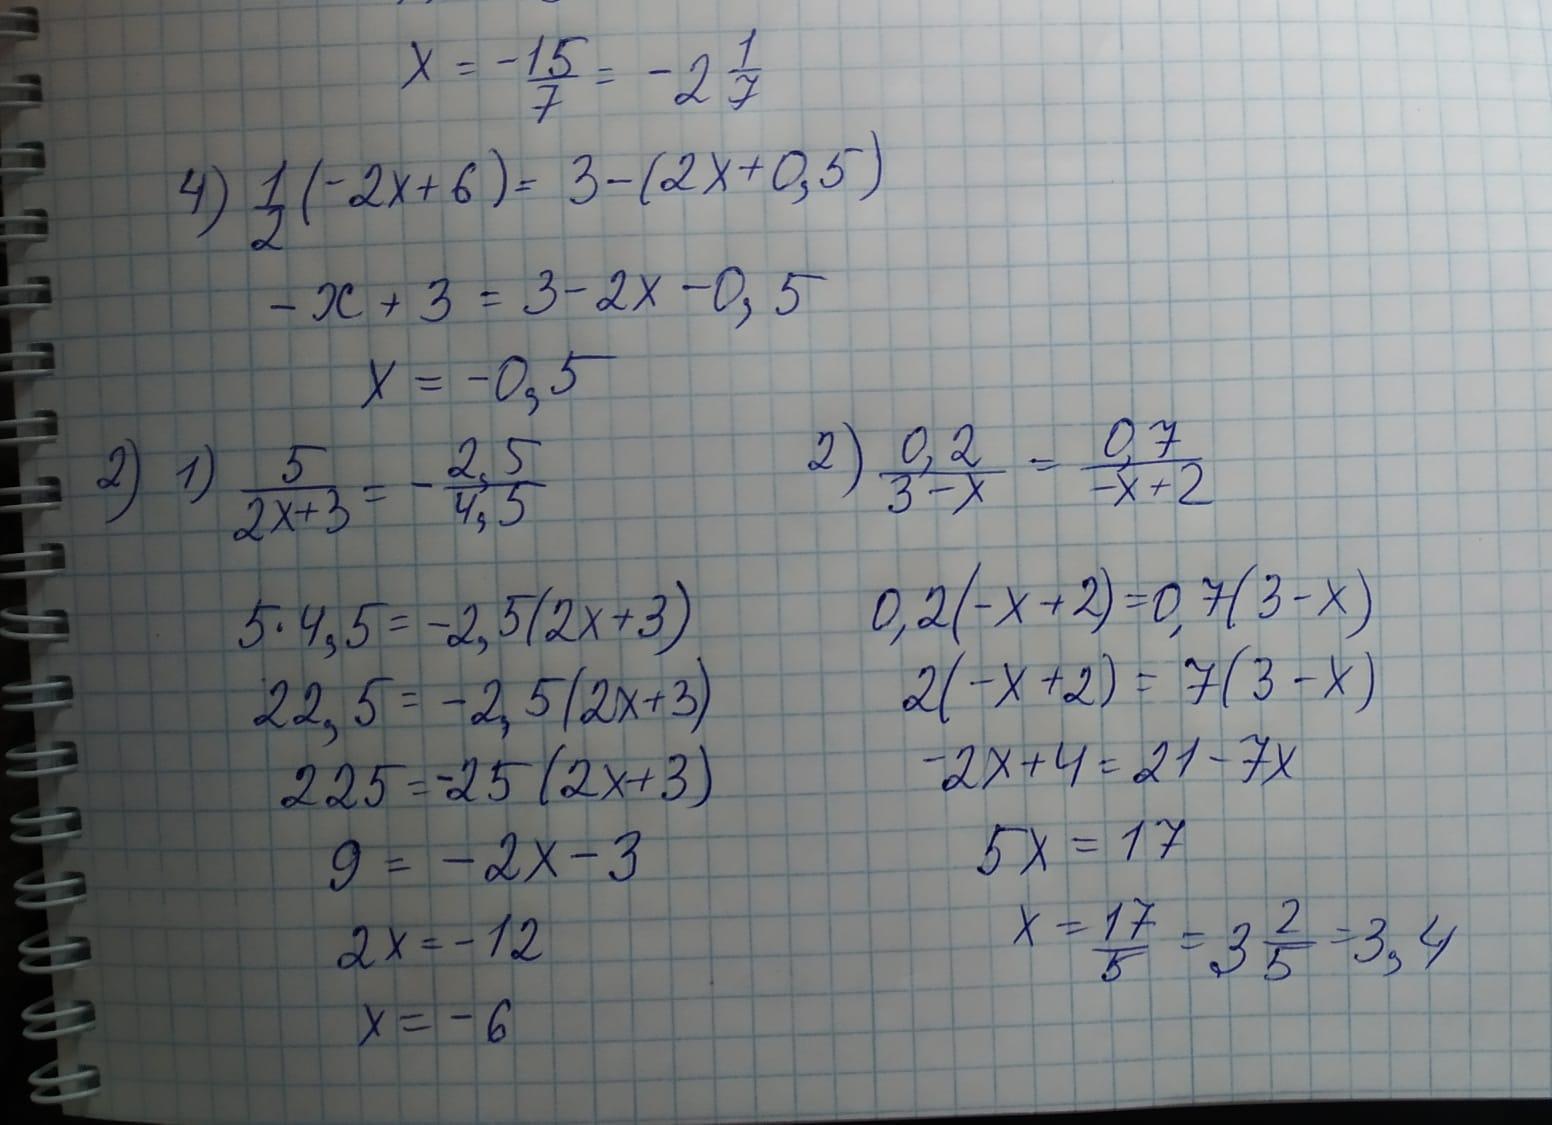 x = -15/7 = -2 1/7
4) 1/2 (-2x+6) = 3-(2x+0,5)
-x + 3 = 3-2x-0,5
x = -0,5
2) 1) 5/(2x+3) = - 2,5/4,5
5·4,5 = -2,5(2x+3)
22,5 = -2,5(2x+3)
225 = -25(2x+3)
9 = -2x-3
2x = -12
x = -6
2) 0,2/(3-x) = 0,7/(-x+2)
0,2(-x+2) = 0,7(3-x)
2(-x+2) = 7(3-x)
-2x+4 = 21-7x
5x = 17
x = 17/5 = 3 2/5 = 3,4